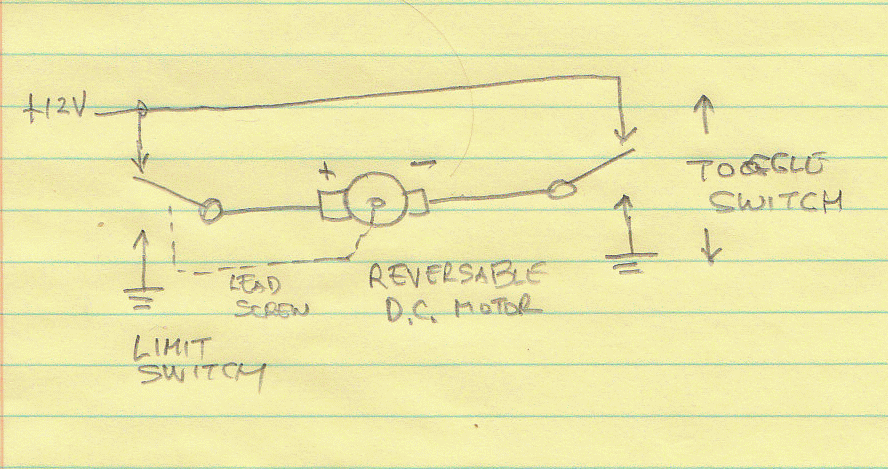 +12V
+ -
TOGGLE
SWITCH
LEAD
SCREW
REVERSABLE
D.C. MOTOR
LIMIT
SWITCH